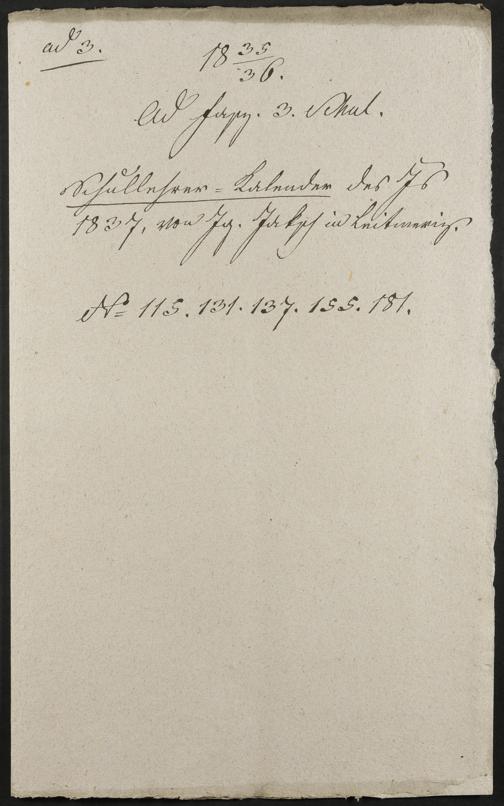 ad 3.
18 35/36.
Ad Fasz. 3. Schul.
Schullehrer=Kalender des Js
1837, von Ig. Jaksch in Leitmeritz.
No 115. 131. 137. 155. 181.